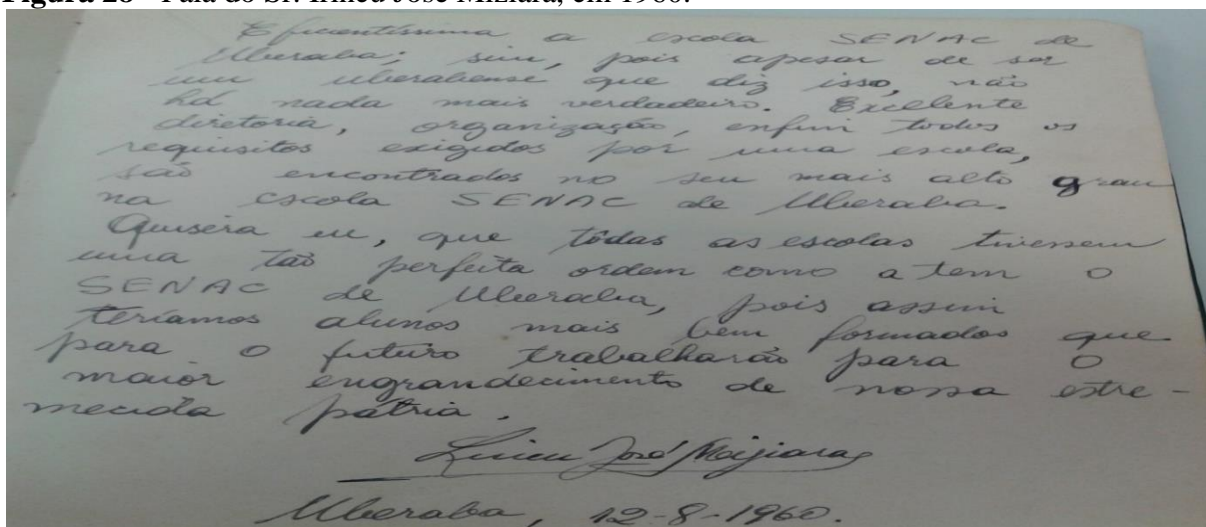 Figura 28 - Fala do Sr. Irineu José Miziara, em 1960.
Eficientíssima a escola SENAC de
Uberaba; sim, pois apesar de ser
um uberabense que diz isso, não
há nada mais verdadeiro. Excelente
diretoria, organização, enfim todos os
requisitos exigidos por uma escola,
são encontrados no seu mais alto grau
na escola SENAC de Uberaba.
Quisera eu, que tôdas as escolas tivessem
uma tão perfeita ordem como a tem o
SENAC de Uberaba, pois assim
teríamos alunos mais bem formados que
para o futuro trabalharão para o
maior engrandecimento de nossa estre-
mecida pátria.
José Miziara
Uberaba, 12-8-1960.